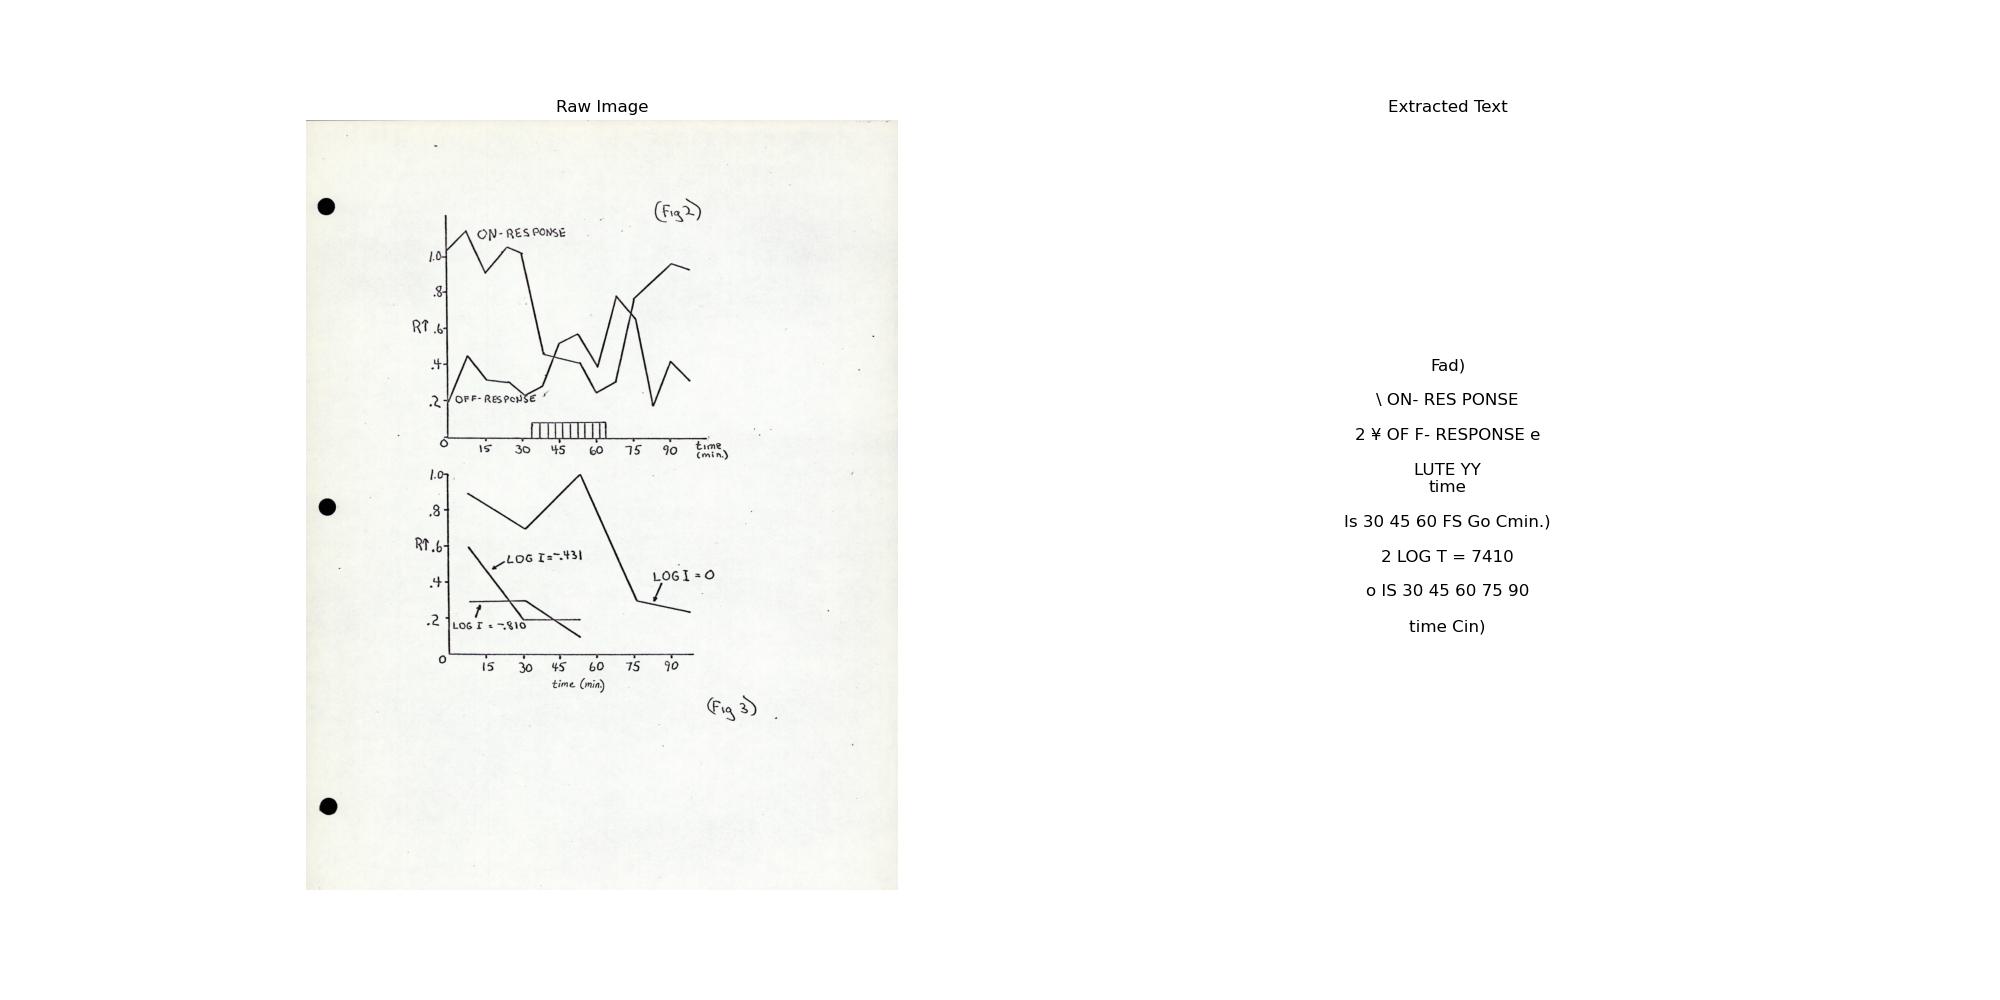 Raw Image
Extracted Text
(Fig 2)
ON-RESPONSE
1.0
.8
R↑ .6
.4
.2 OFF-RESPONSE
0 15 30 45 60 75 90 time
(min.)
1.0
.8
R↑ .6
LOG I = -.431
LOG I = 0
.4
.2 LOG I = -.810
0 15 30 45 60 75 90
time (min.)
(Fig 3)
Fad)
\ ON- RES PONSE
2 ¥ OF F- RESPONSE e
LUTE YY
time
Is 30 45 60 FS Go Cmin.)
2 LOG T = 7410
o IS 30 45 60 75 90
time Cin)